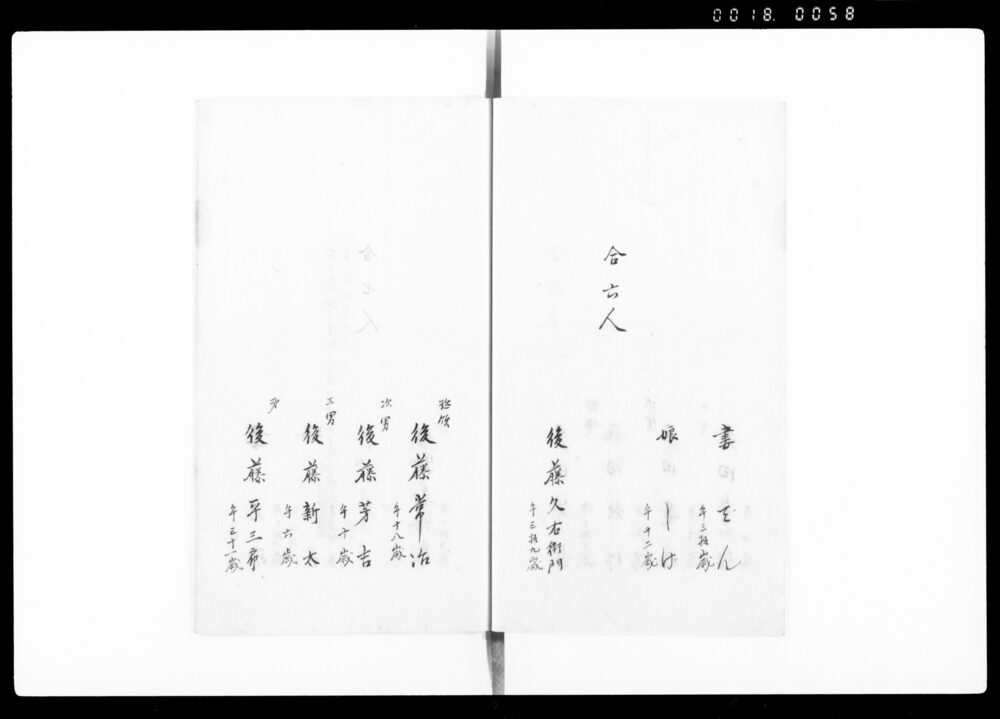 0018. 0058
妻 きん
年三拾歳
娘 しけ
年十二歳
合六人
後藤久右衛門
年三拾九歳
惣領
後藤常治
年十八歳
次男
後藤芳吉
年十歳
三男
後藤新太
年六歳
弟
後藤平三郎
年三十一歳